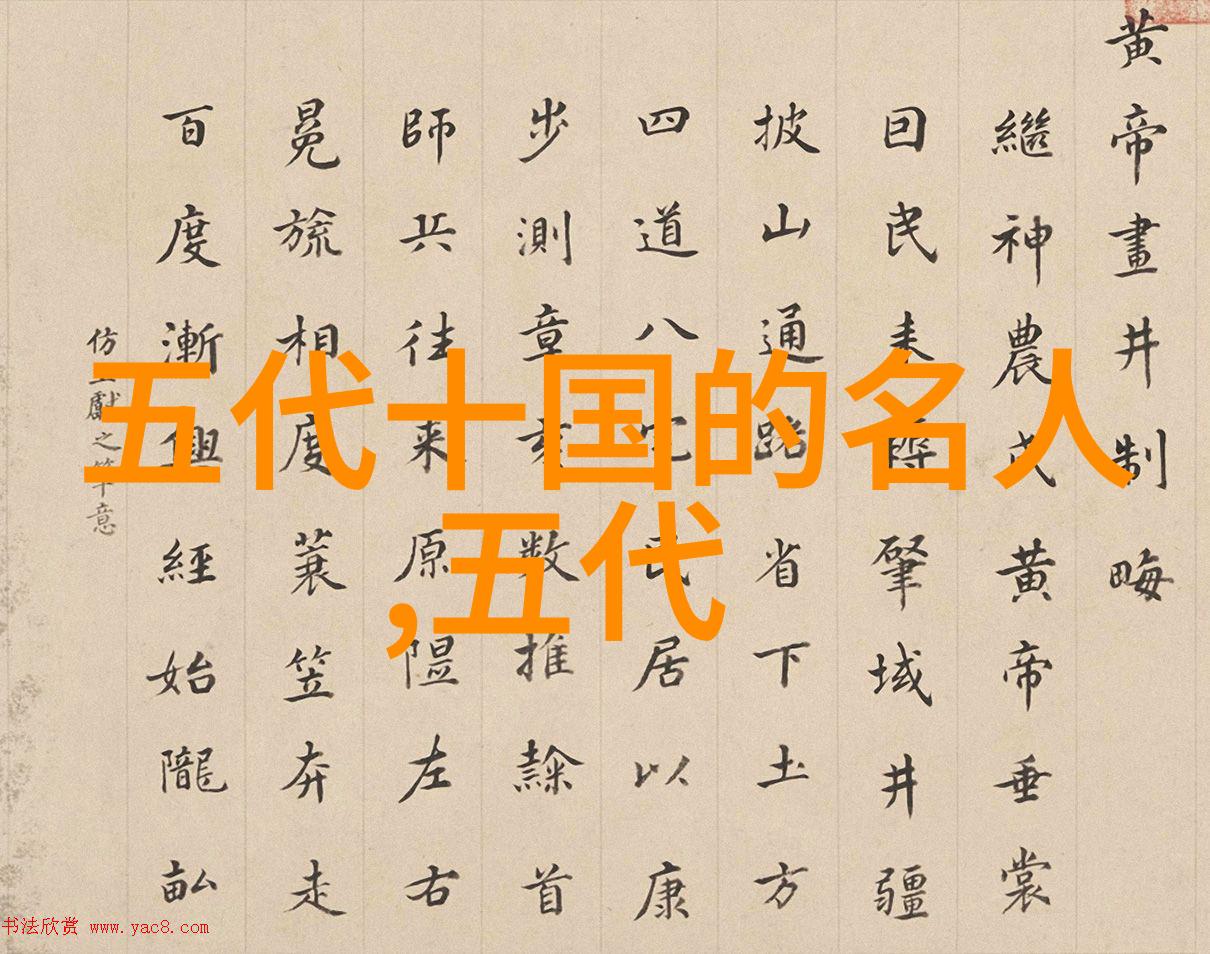 黄帝畫井制畮
繼神農氏黄帝垂裳
囙民耒肇域井疆
披山通路省下土方
四道八宅民居以康
步測章亥数推隸首
師兵往来原隰左右
冕旒相度蓑笠奔走
百度漸經始隴畝
仿王獻之筆意
五代十国的名人
,五代
书法欣赏 www.yac8.com